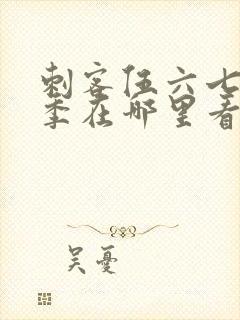 刺客伍六七
季在哪里看
吴忧